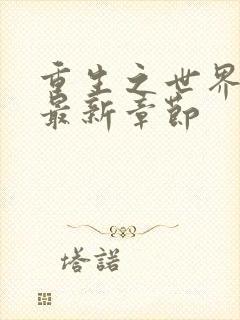 重生之世界
最新章节
塔諾